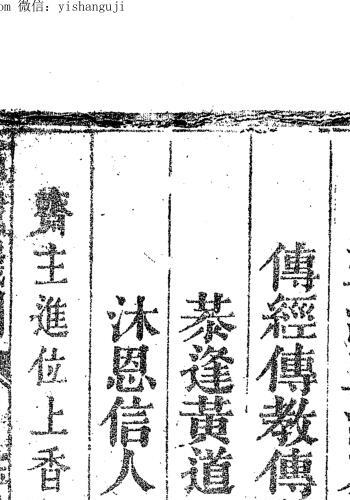 om 微信：yishanguji
傳經傳教傳
恭逢黃道
沐恩信人
齋主進位上香